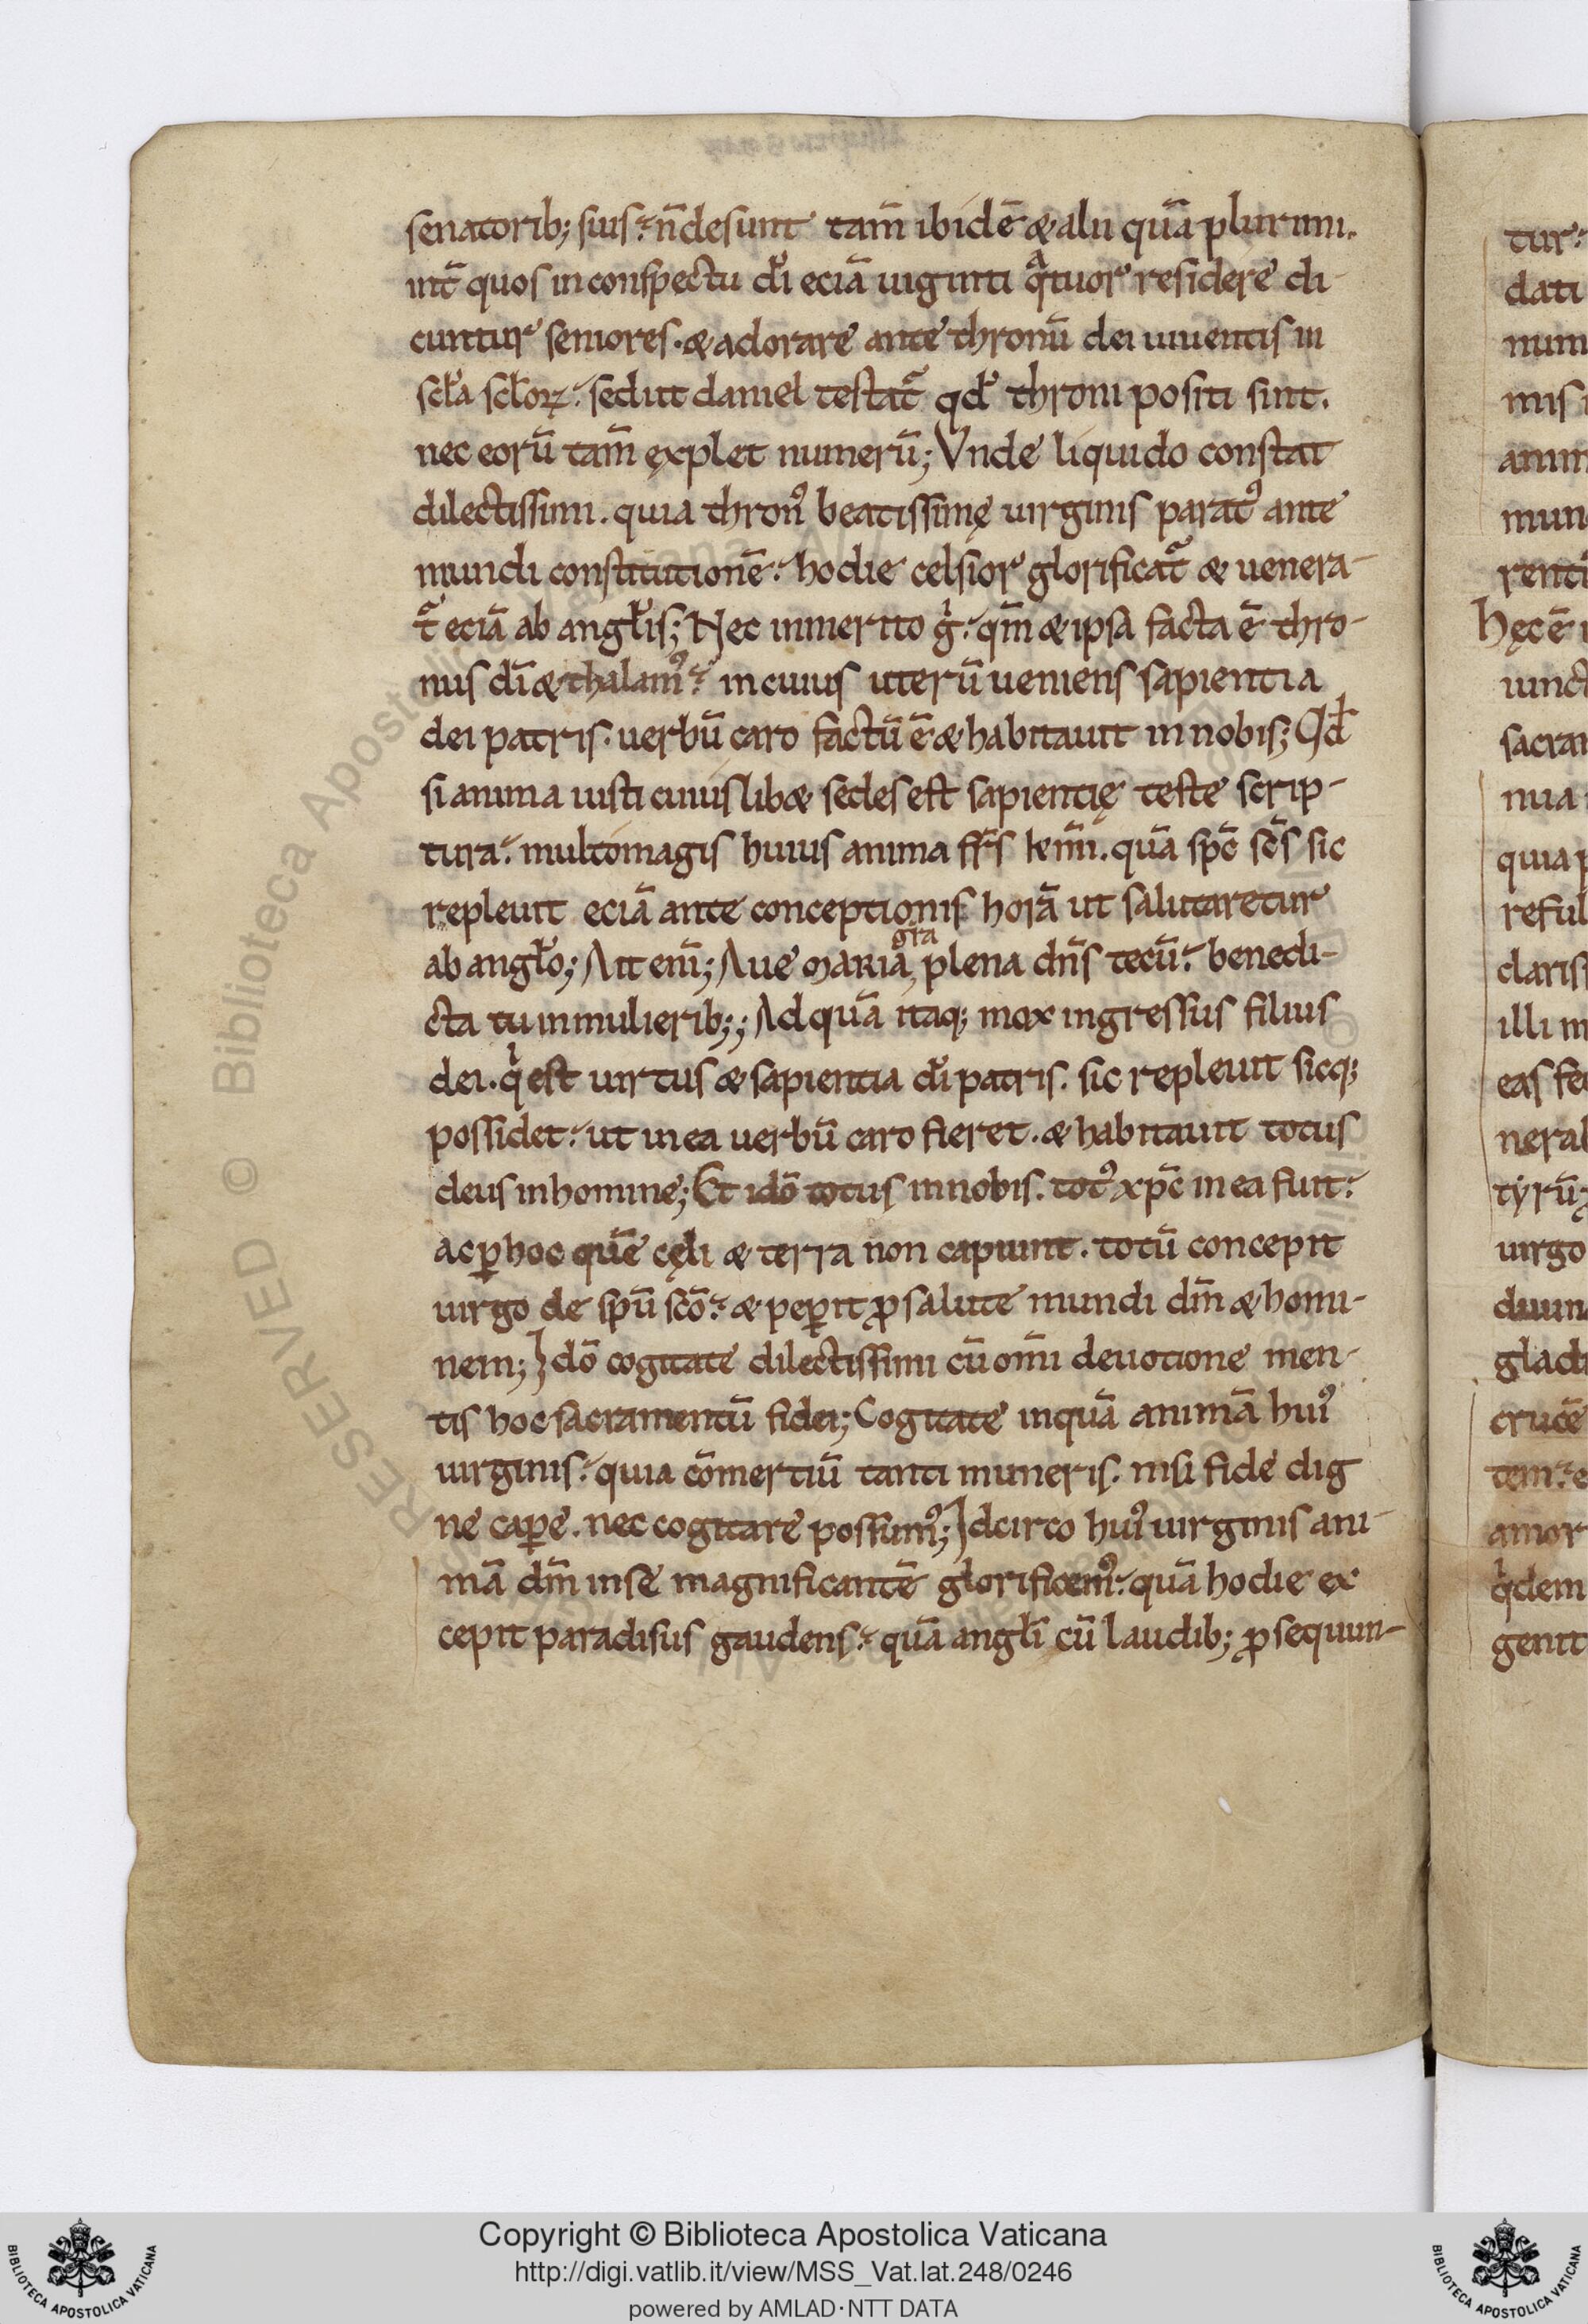 senatorib; suis. n̄ desunt tam̄ ibidē & alii quā plurimi.
int̄ quos in conspectu dī eciā uiginti qͣtuor residere di-
cuntur seniores. & adorare ante thronū dei uiuentis in
scła scłoꝝ. sed ut daniel testat̄ qd̄ throni positi sint.
nec eorū tam̄ ęxplet numerū; Vnde liquido constat
dilectissimi. quia thron⁹ beatissimę uirginis parat⁹ ante
mundi constitutionē. hodie celsior glorificat̄ & uenera-
t̄ eciā ab angłis; Nec inmerito g̊. qm̄ & ipsa facta ē thro-
nus dī & thalam⁹. in cuius uterū ueniens sapientia
dei patris. uerbū caro factū ē & habitauit in nobis; Qd̄
si anima iusti cuiuslib& sedes est sapientię teste scrip-
tura. multo magis huius anima fr̄s kemī. quā spc̄ sc̄s sic
repleuit eciā ante conceptionis horā ut salutaretur
ab angło; Ait enī; Aue maria gr̄a plena dn̄s tecū. benedi-
cta tu in mulierib;; Ad quā itaq; mox ingressus filius
dei. qⁱ est uirtus & sapientia dī patris. sic repleuit sicq;
possidet. ut in ea uerbū caro fieret. & habitauit totus
deus in homine; Et idō totus in nobis. tot⁹ xpc̄ in ea fuit.
ac ꝑ hoc quē cęli & terra non capiunt. totū concepit
uirgo de spū scō. & peꝑit ꝓ salute mundi dm̄ & homi-
nem; Idō cogitate dilectissimi cū om̄i deuotione men-
tis hoc sacramentū fidei; Cogitate inquā animā hui⁹
uirginis. quia cōmertiū tanti muneris. nisi fide dig
ne caꝑe. nec cogitare possum⁹; Idcirco hui⁹ uirginis ani-
mā dm̄ in se magnificantē glorificem⁹. quā hodie ex
cepit paradisus gaudens. quā angłi cū laudib; ꝓsequun-
tur.
dati
num
mis
mun
renti
hęc ē
sacra
nua
quia
reful
claris
illi
eas
tyrū
uirgo
crucē
amor
qⁱdem
genit
Copyright © Biblioteca Apostolica Vaticana
http://digi.vatlib.it/view/MSS_Vat.lat.248/0246
powered by AMLAD·NTT DATA
BIBLIOTECA APOSTOLICA VATICANA
BIBLIOTECA APOSTOLICA VATICANA